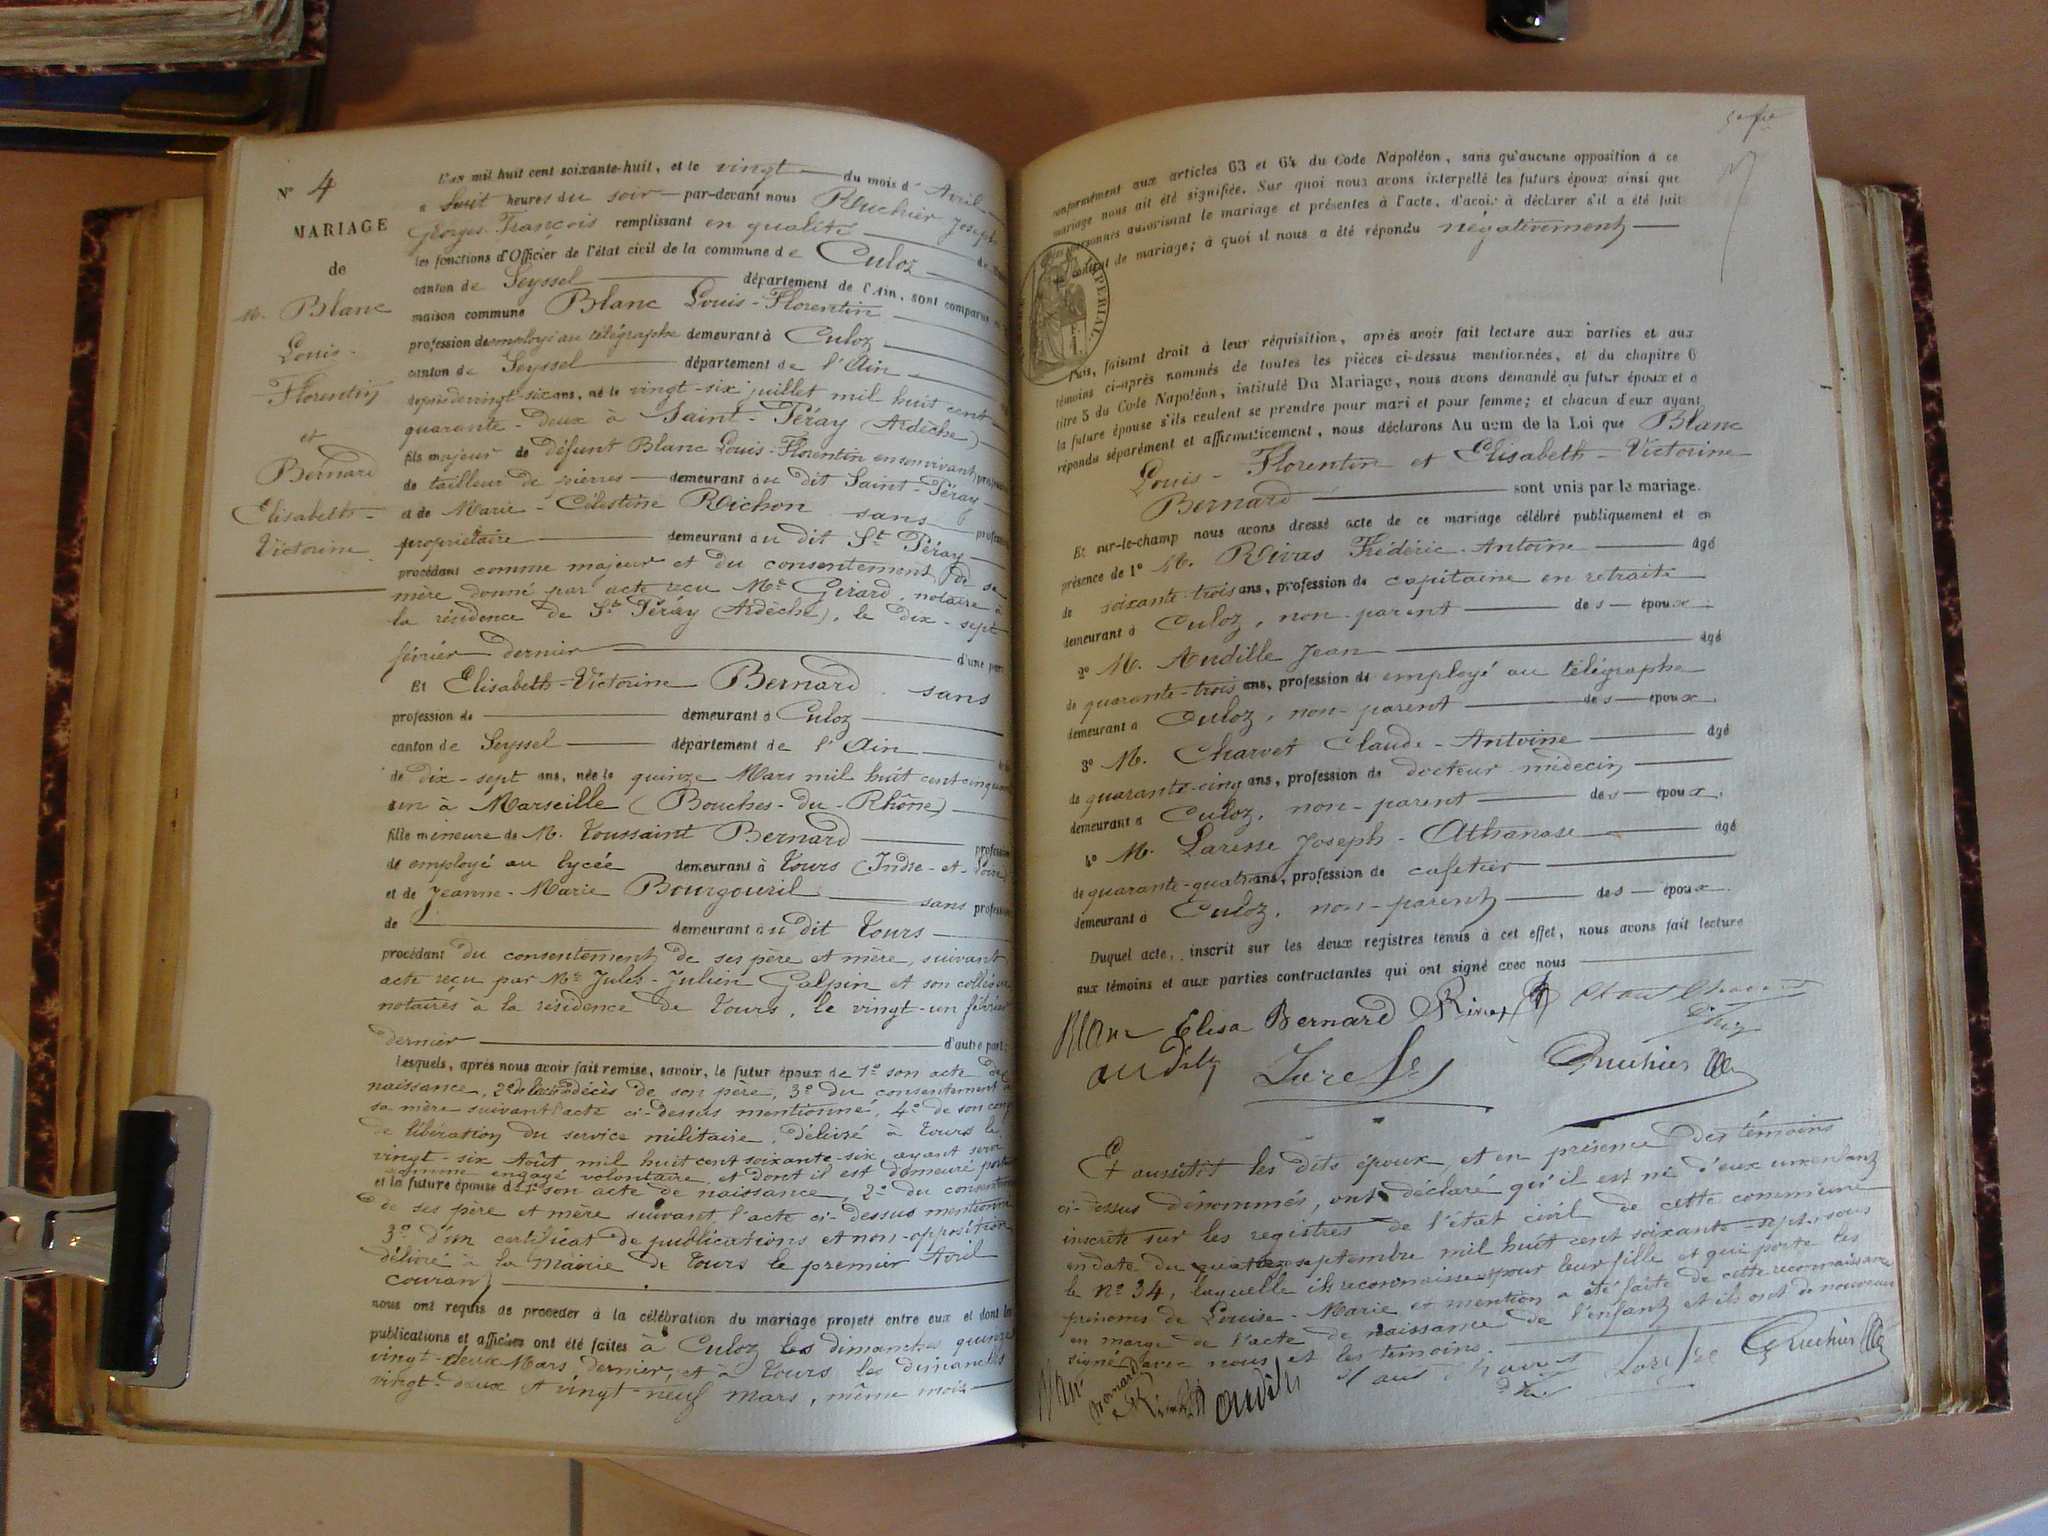 N° 4
MARIAGE
de
M. Blanc
Louis-
Florentin
et
Bernard
Elisabeth-
Victorine
L'an mil huit cent soixante-huit, et le vingt du mois d'Avril
a huit heures du soir par-devant nous Ruchier Joseph
Georges-François remplissant en qualité de
les fonctions d'Officier de l'état civil de la commune de Culoz
canton de Seyssel département de l'Ain, sont comparus
maison commune Blanc Louis-Florentin
profession de employé au télégraphe demeurant à Culoz
canton de Seyssel département de l'Ain
vingt-six ans, né le vingt-six juillet mil huit cent
quarante-deux à Saint-Péray (Ardèche)
fils majeur de défunt Blanc Louis-Florentin en son vivant
de tailleur de pierres demeurant au dit Saint-Péray
et de Marie-Célestine Richon sans
propriétaire demeurant au dit St Péray
procédant comme majeur et du consentement de sa
mère donné par acte reçu Me Girard, notaire à
la résidence de St Péray (Ardèche), le dix-sept
février dernier d'une part
Et Elisabeth-Victorine Bernard sans
profession de demeurant à Culoz
canton de Seyssel département de l'Ain
de dix-sept ans, née le quinze Mars mil huit cent cinquante
un à Marseille (Bouches-du-Rhône)
fille mineure de M. Toussaint Bernard profession
de employé au lycée demeurant à Tours (Indre-et-Loire)
et de Jeanne-Marie Bourgouril sans profession
de demeurant au dit Tours
procédant du consentement de ses père et mère, suivant
acte reçu par Me Jules-Julien Galpin et son collègue
notaires à la résidence de Tours, le vingt-un février
dernier d'autre part;
Lesquels, après nous avoir fait remise, savoir, le futur époux de 1° son acte de
naissance, 2° de décès de son père, 3° du consentement de
sa mère suivant l'acte ci-dessus mentionné, 4° de son congé
de libération du service militaire, délivré à Tours le
vingt-six Août mil huit cent soixante-six, ayant servi
comme engagé volontaire, et dont il est demeuré
et la future épouse de 1° son acte de naissance, 2° du consentement
de ses père et mère suivant l'acte ci-dessus mentionné
3° d'un certificat de publications et non-opposition
délivré à la Mairie de Tours le premier Avril
courant
nous ont requis de procéder à la célébration du mariage projeté entre eux et dont les
publications et affiches ont été faites à Culoz les dimanches quinze
vingt-deux Mars dernier, et à Tours les dimanches
vingt-deux et vingt-neuf Mars, même mois
conformément aux articles 63 et 64 du Code Napoléon, sans qu'aucune opposition à ce
mariage nous ait été signifiée. Sur quoi nous avons interpellé les futurs époux ainsi que
personnes autorisant le mariage et présentes à l'acte, d'avoir à déclarer s'il a été fait
contrat de mariage; à quoi il nous a été répondu négativement
IMPÉRIAL
Puis, faisant droit à leur réquisition, après avoir fait lecture aux parties et aux
témoins ci-après nommés de toutes les pièces ci-dessus mentionnées, et du chapitre 6
titre 5 du Code Napoléon, intitulé Du Mariage, nous avons demandé au futur époux et a
la future épouse s'ils veulent se prendre pour mari et pour femme; et chacun d'eux ayant
répondu séparément et affirmativement, nous déclarons Au nom de la Loi que Blanc
Louis-Florentin et Elisabeth-Victorine
Bernard sont unis par le mariage.
Et sur-le-champ nous avons dressé acte de ce mariage célébré publiquement et en
présence de 1° M. Rivas Frédéric-Antoine âgé
de soixante-trois ans, profession de capitaine en retraite
demeurant à Culoz, non-parent des époux
2° M. Audille Jean âgé
de quarante-trois ans, profession de employé au télégraphe
demeurant à Culoz, non-parent des époux
3° M. Charvet Claude-Antoine âgé
de quarante-cinq ans, profession de docteur-médecin
demeurant à Culoz, non-parent des époux
4° M. Laresse Joseph-Athanase âgé
de quarante-quatre ans, profession de cafetier
demeurant à Culoz, non-parent des époux
Duquel acte, inscrit sur les deux registres tenus à cet effet, nous avons fait lecture
aux témoins et aux parties contractantes qui ont signé avec nous
Blanc Elisa Bernard
Ruchier
Et aussitôt les dits époux, et en présence des témoins
ci-dessus dénommés, ont déclaré qu'il est né d'eux un enfant
inscrite sur les registres de l'état civil de cette commune
en date du quatre septembre mil huit cent soixante-sept, sous
le n° 34, laquelle ils reconnaissent pour leur fille et qui porte les
prénoms de Louise-Marie et mention a été faite de cette reconnaissance
en marge de l'acte de naissance de l'enfant et ils ont de nouveau
signé avec nous et les témoins.
Bernard
Ruchier